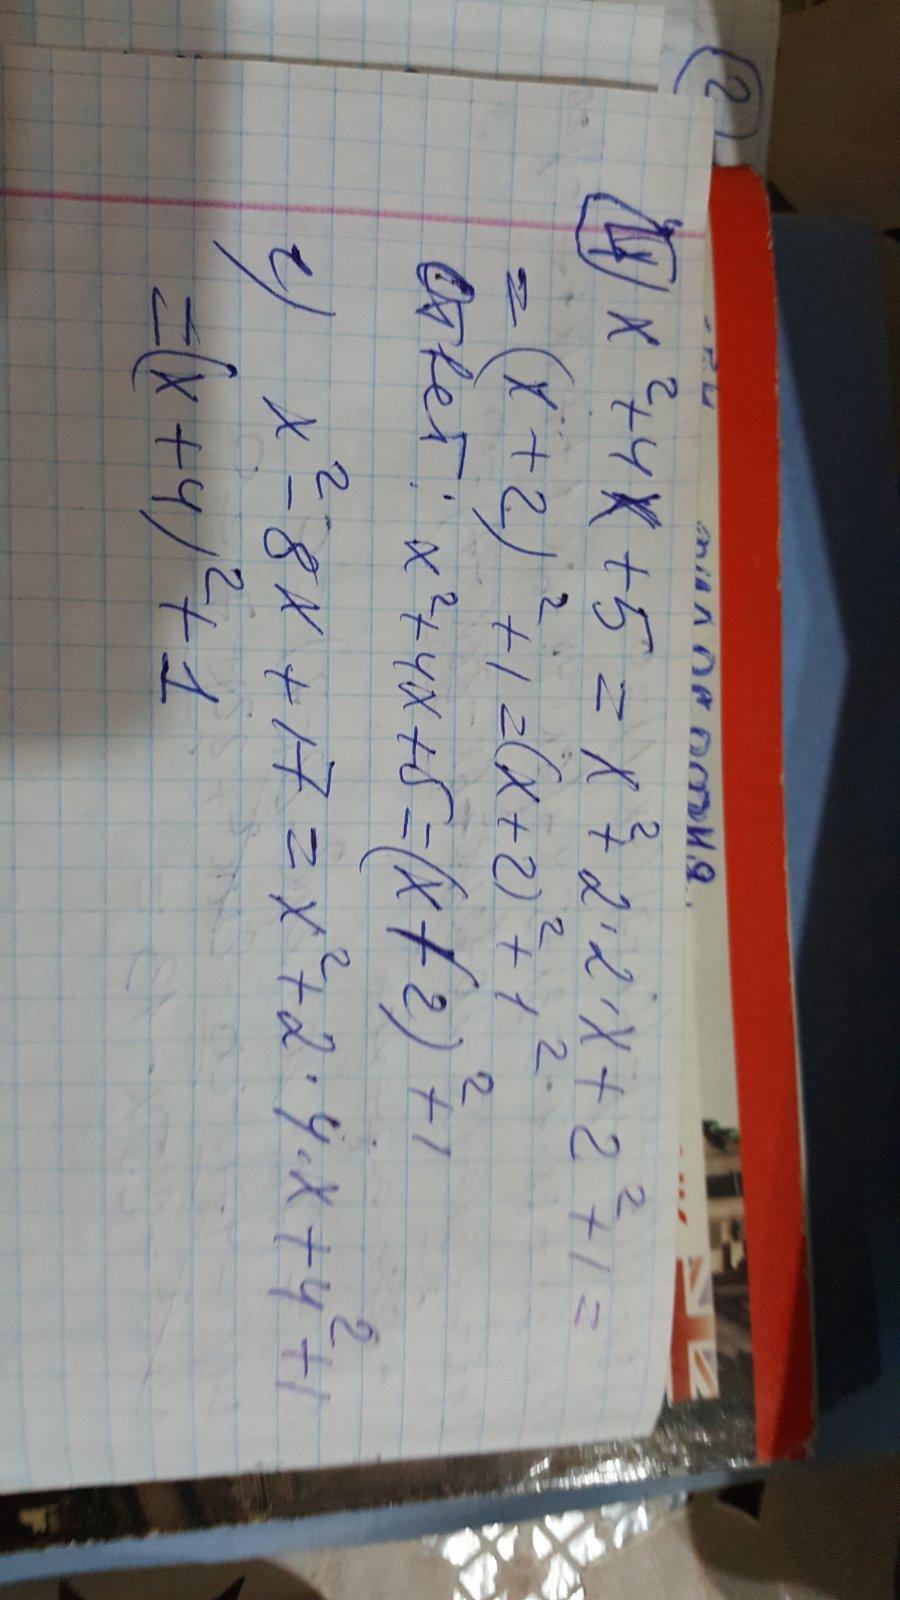 2
4) x²+4x+5=x²+2·2·x+2²+1=
=(x+2)²+1=(x+2)²+1².
Ответ: x²+4x+5=(x+2)²+1
г) x²-8x+17=x²+2·4·x+4²+1
=(x+4)²+1